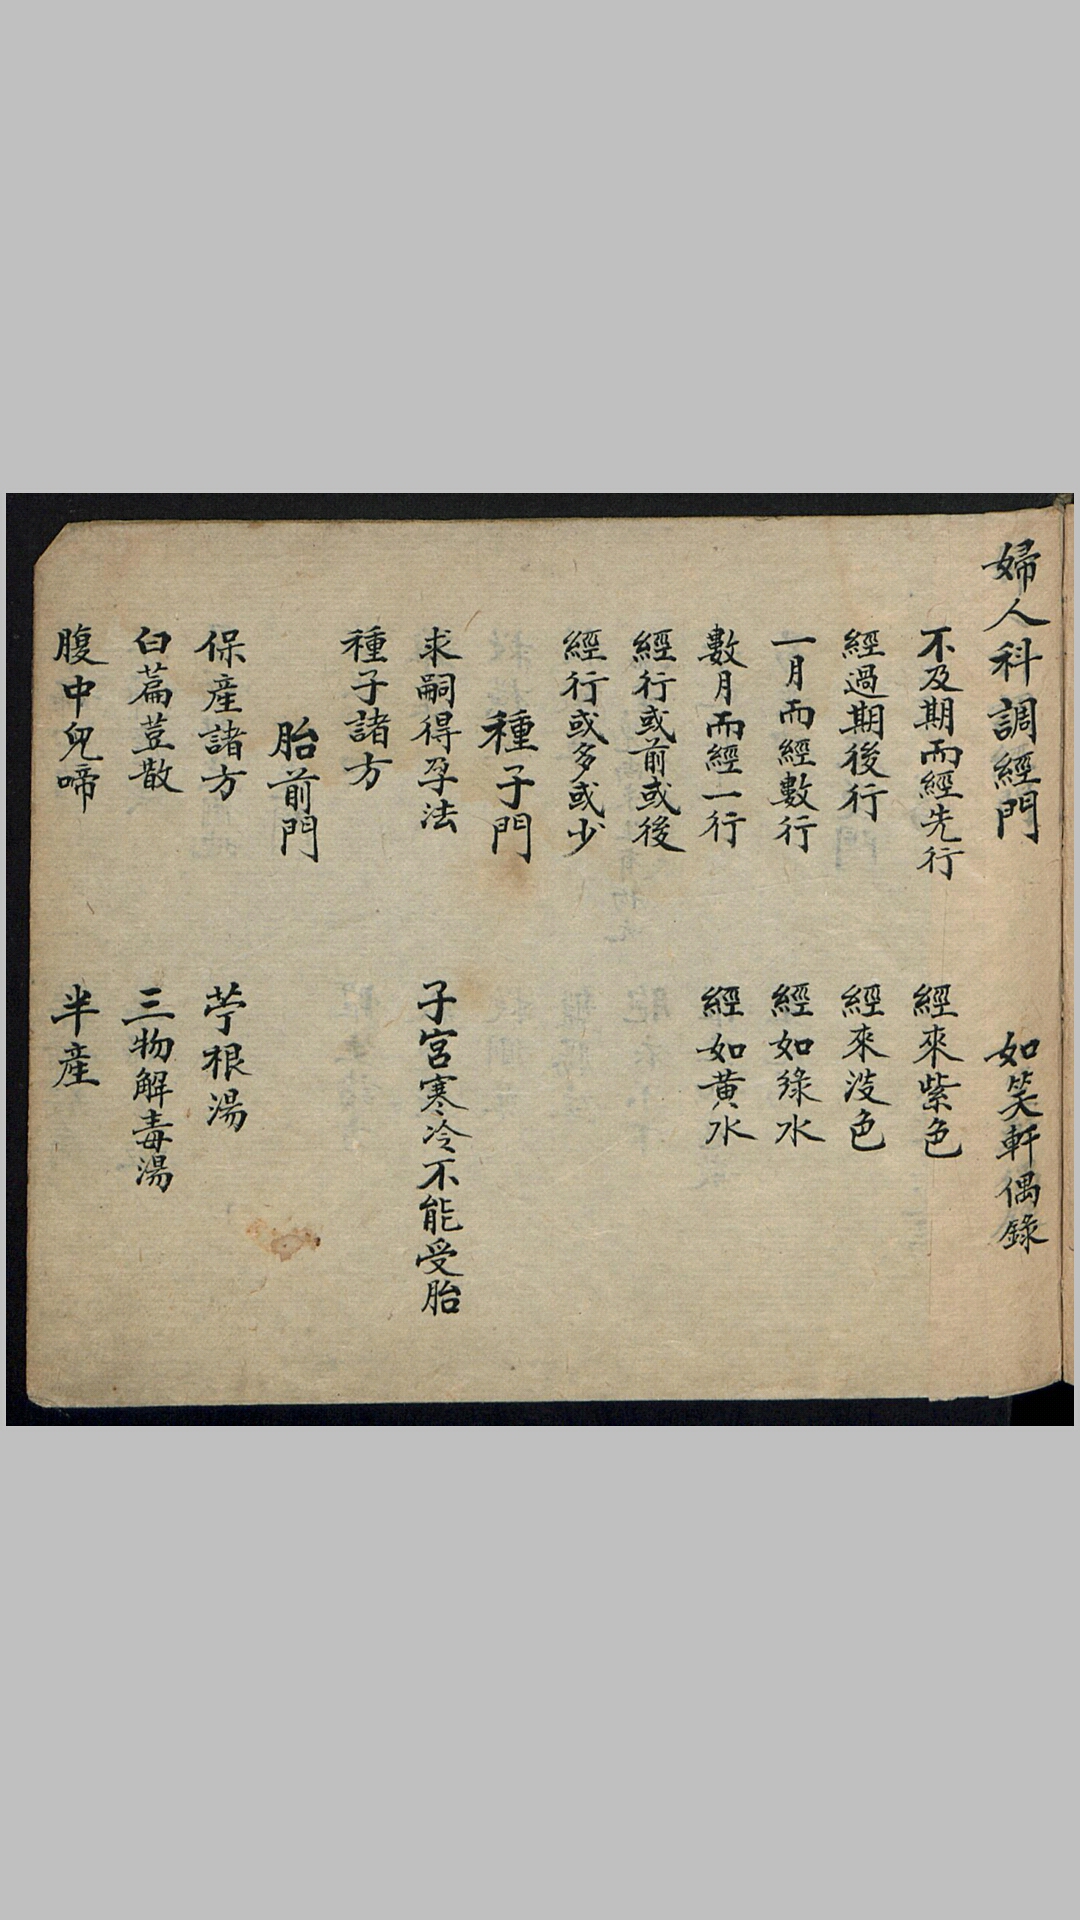 婦人科調經門 如笑軒偶錄
不及期而經先行 經來紫色
經過期後行 經來淡色
一月而經數行 經如綠水
數月而經一行 經如黃水
經行或前或後
經行或多或少
種子門
求嗣得孕法 子宮寒冷不能受胎
種子諸方
胎前門
保產諸方 苧根湯
白萹荳散 三物解毒湯
腹中兒啼 半產